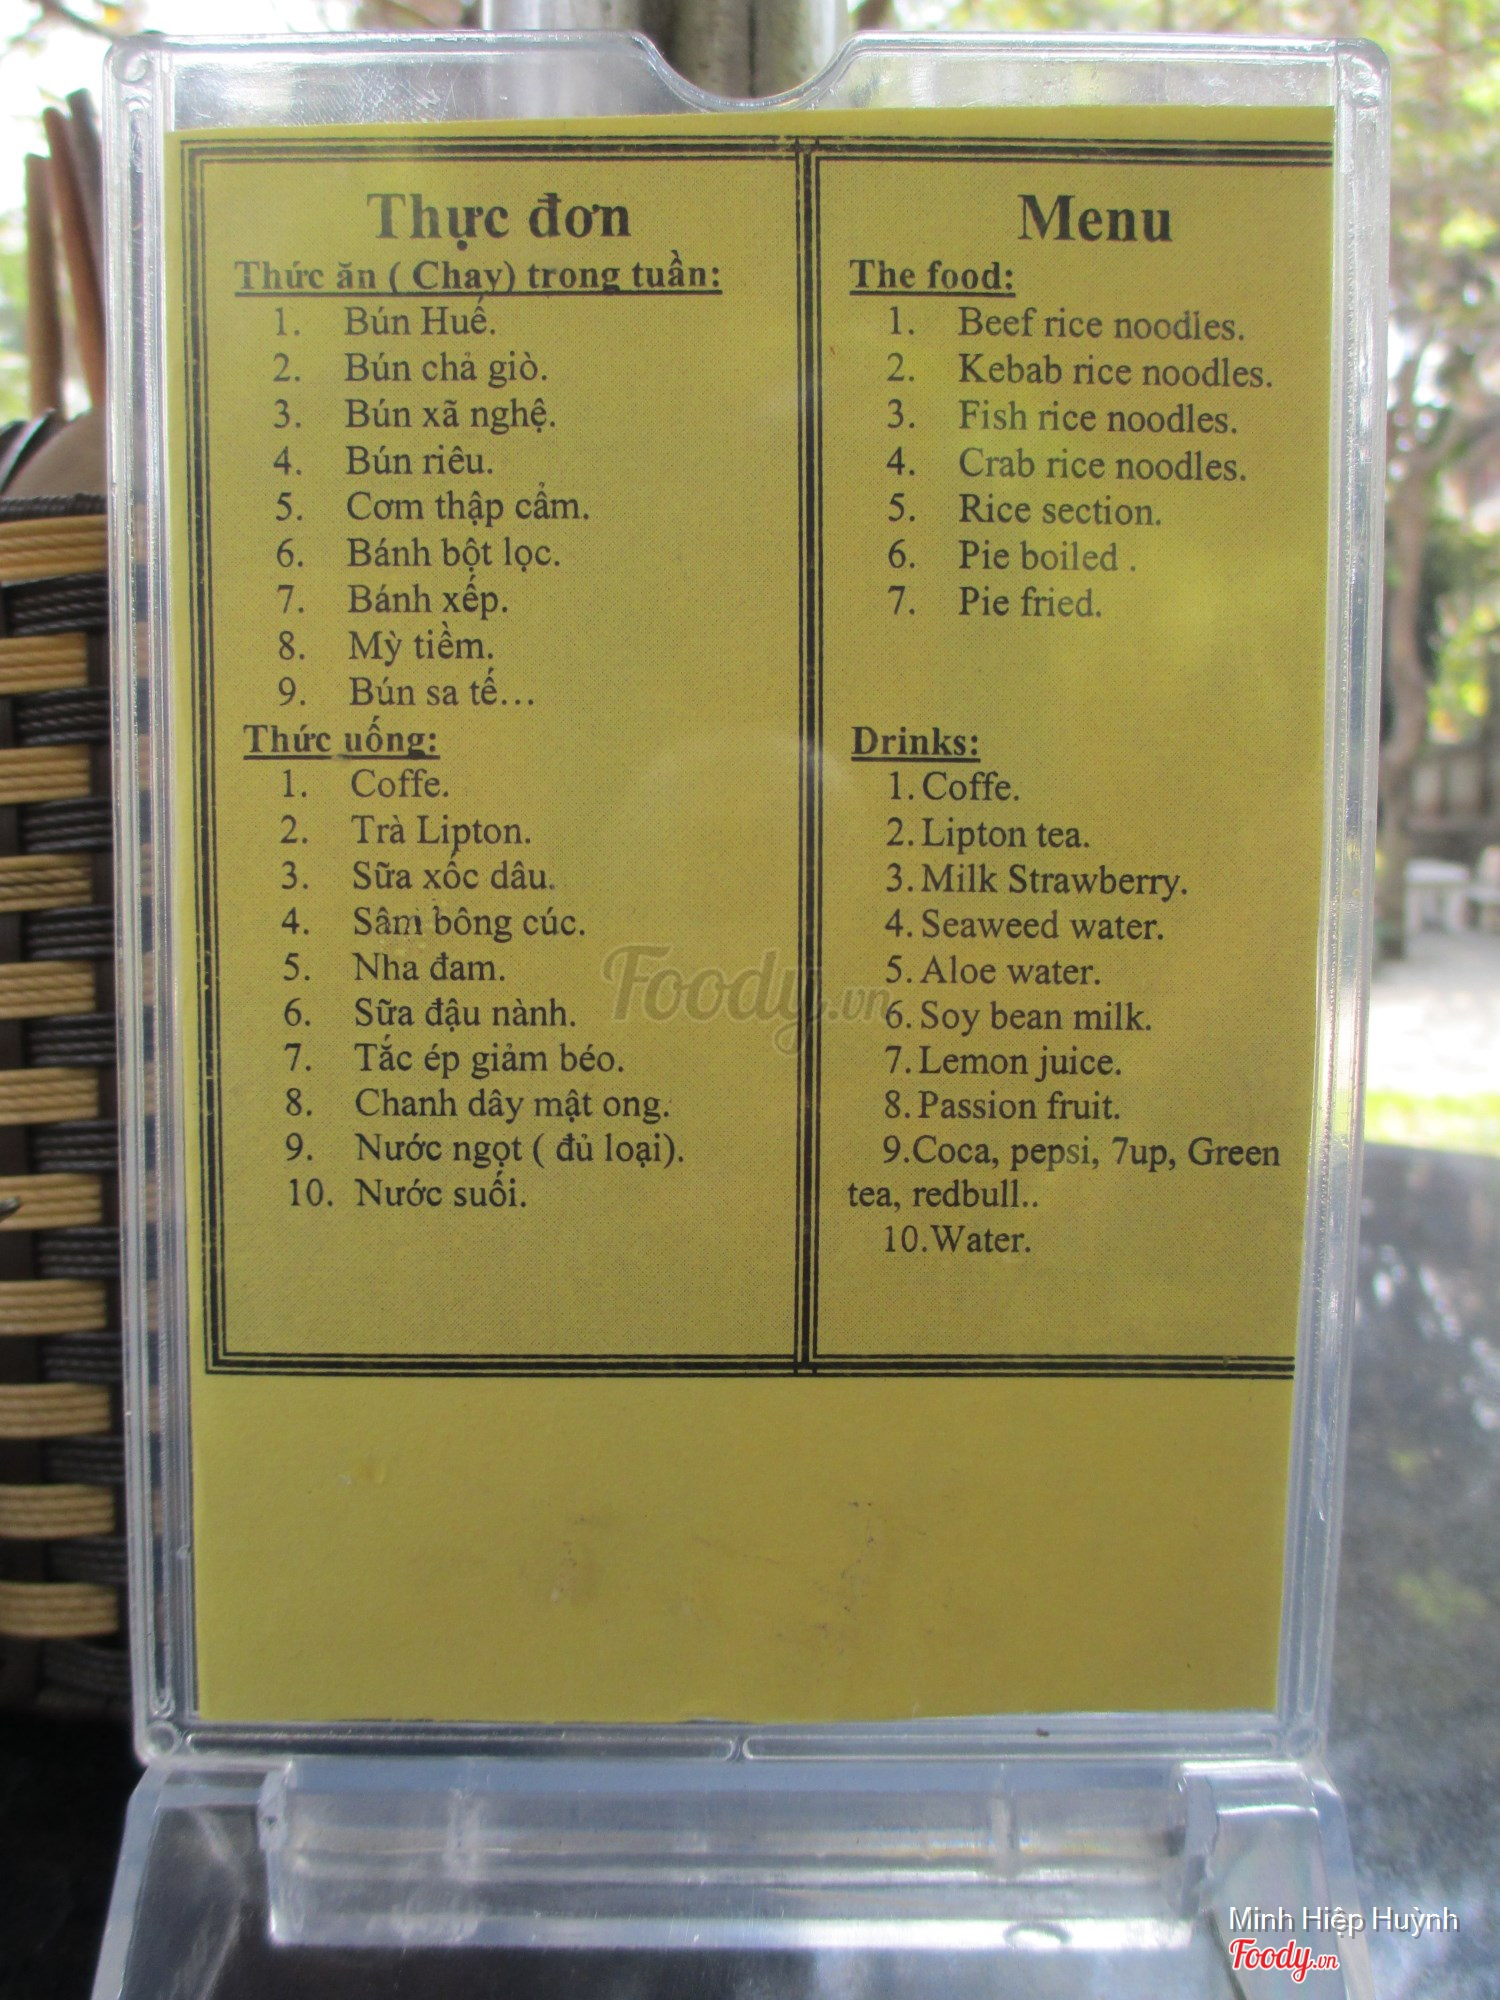 Thực đơn
Thức ăn ( Chay) trong tuần:
1. Bún Huế.
2. Bún chả giò.
3. Bún xã nghệ.
4. Bún riêu.
5. Cơm thập cẩm.
6. Bánh bột lọc.
7. Bánh xếp.
8. Mỳ tiềm.
9. Bún sa tế...
Thức uống:
1. Coffe.
2. Trà Lipton.
3. Sữa xốc dâu.
4. Sâm bông cúc.
5. Nha đam.
6. Sữa đậu nành.
7. Tắc ép giảm béo.
8. Chanh dây mật ong.
9. Nước ngọt ( đủ loại).
10. Nước suối.
Menu
The food:
1. Beef rice noodles.
2. Kebab rice noodles.
3. Fish rice noodles.
4. Crab rice noodles.
5. Rice section.
6. Pie boiled .
7. Pie fried.
Drinks:
1. Coffe.
2. Lipton tea.
3. Milk Strawberry.
4. Seaweed water.
5. Aloe water.
6. Soy bean milk.
7. Lemon juice.
8. Passion fruit.
9.Coca, pepsi, 7up, Green
tea, redbull..
10.Water.
Foody.vn
Minh Hiệp Huỳnh
Foody.vn